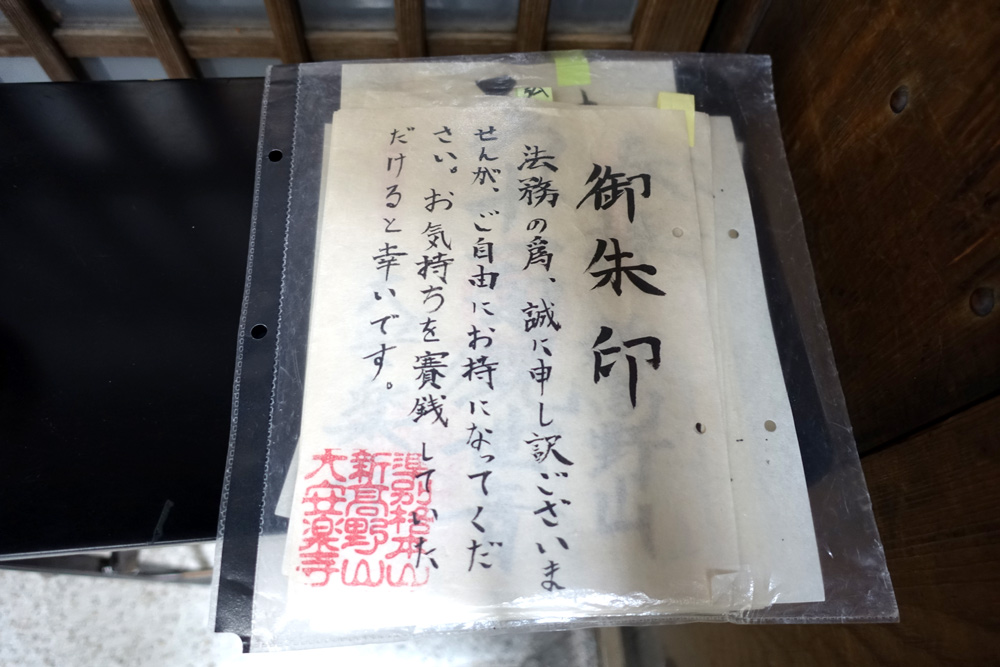 御朱印
法務の爲、誠に申し訳ございま
せんが、ご自由にお持になってくだ
さい。お気持ちを賽銭していた
だけると幸いです。
準別格本山
新高野山
大安楽寺